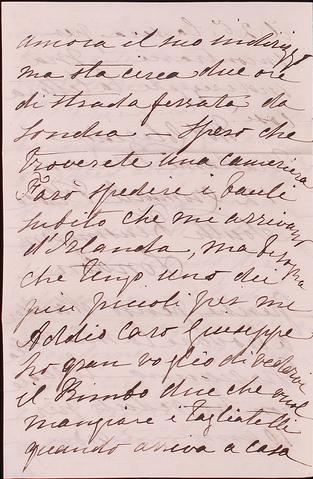 ancora il suo indirizzo
ma sta circa due ore
di strada ferrata da
Londra — spero che
troverete una cameriera
Farò spedire i bauli
subito che mi arrivano
d'Irlanda, ma bisogna
che tengo uno dei
piu piccoli per me
Addio caro Giuseppe
ho gran voglio di vedervi
il Bimbo dice che vuol
mangiare i Tagliatelli
quando arriva a casa